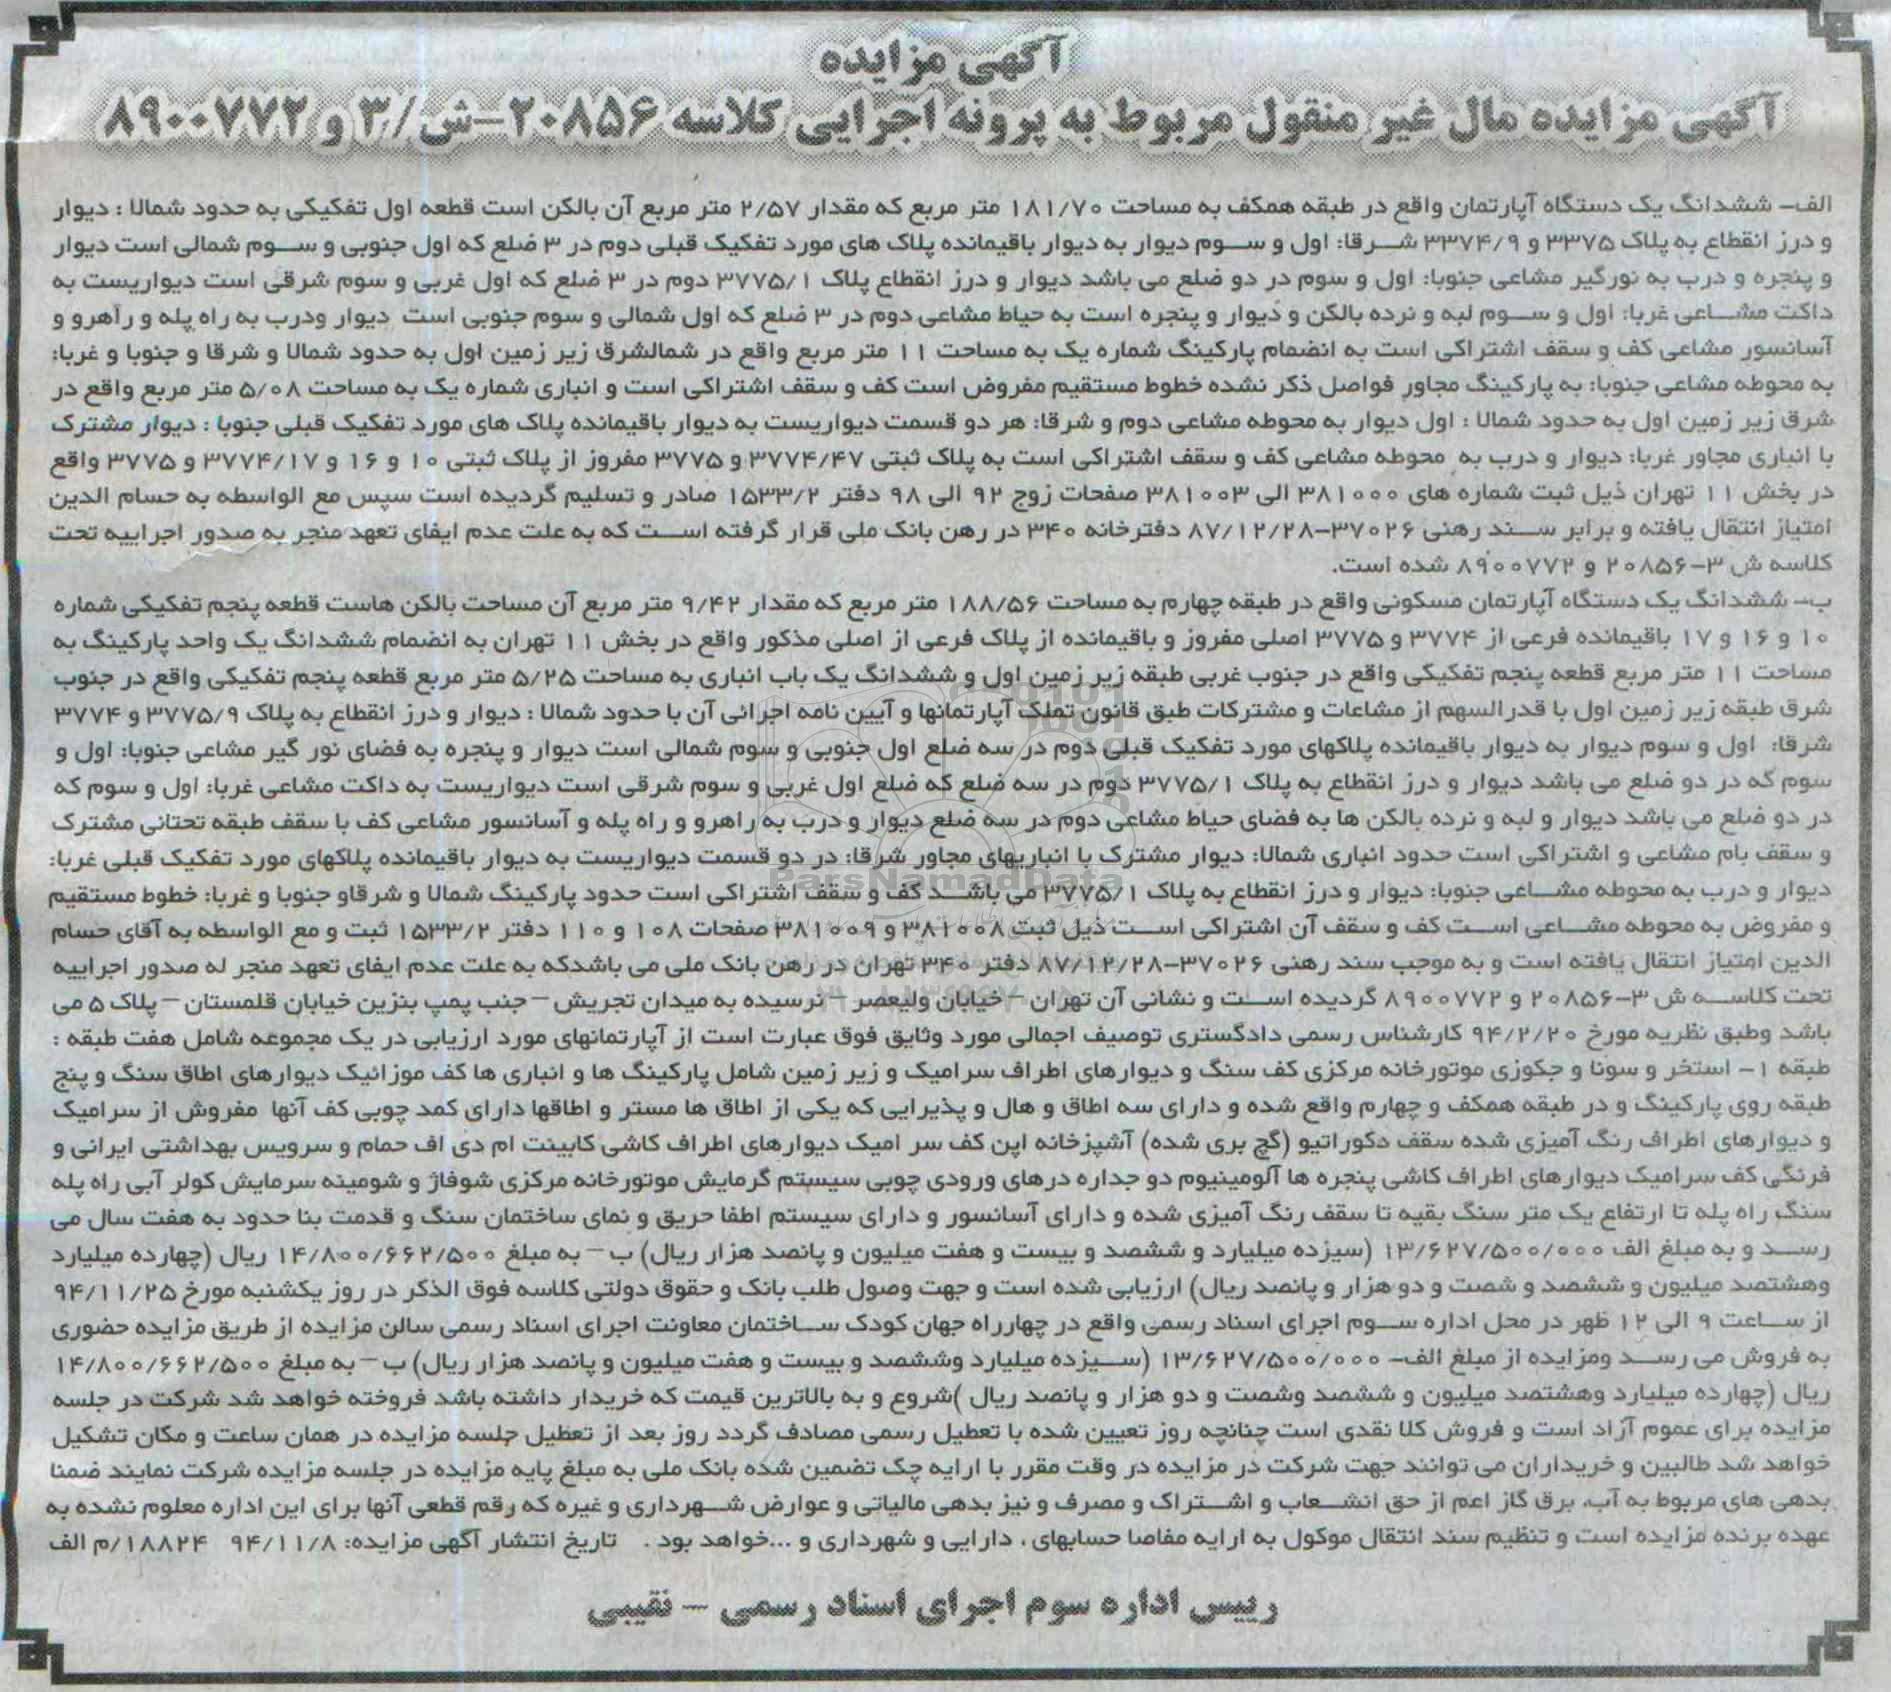 آگهی مزایده
آگهی مزایده مال غیر منقول مربوط به پرونه اجرایی کلاسه ۲۰۸۵۶-ش/۳ و ۸۹۰۰۷۷۲
الف- ششدانگ یک دستگاه آپارتمان واقع در طبقه همکف به مساحت ۱۸۱/۷۰ متر مربع که مقدار ۲/۵۷ متر مربع آن بالکن است قطعه اول تفکیکی به حدود شمالا : دیوار
و درز انقطاع به پلاک ۳۳۷۵ و ۳۳۷۴/۹ شرقا: اول و سوم دیوار به دیوار باقیمانده پلاک های مورد تفکیک قبلی دوم در ۳ ضلع که اول جنوبی و سوم شمالی است دیوار
و پنجره و درب به نورگیر مشاعی جنوبا: اول و سوم در دو ضلع می باشد دیوار و درز انقطاع پلاک ۳۷۷۵/۱ دوم در ۳ ضلع که اول غربی و سوم شرقی است دیواریست به
داکت مشاعی غربا: اول و سوم لبه و نرده بالکن و دیوار و پنجره است به حیاط مشاعی دوم در ۳ ضلع که اول شمالی و سوم جنوبی است دیوار ودرب به راه پله و راهرو و
آسانسور مشاعی کف و سقف اشتراکی است به انضمام پارکینگ شماره یک به مساحت ۱۱ متر مربع واقع در شمالشرق زیر زمین اول به حدود شمالا و شرقا و جنوبا و غربا:
به محوطه مشاعی جنوبا: به پارکینگ مجاور فواصل ذکر نشده خطوط مستقیم مفروض است کف و سقف اشتراکی است و انباری شماره یک به مساحت ۵/۰۸ متر مربع واقع در
شرق زیر زمین اول به حدود شمالا : اول دیوار به محوطه مشاعی دوم و شرقا: هر دو قسمت دیواریست به دیوار باقیمانده پلاک های مورد تفکیک قبلی جنوبا : دیوار مشترک
با انباری مجاور غربا: دیوار و درب به محوطه مشاعی کف و سقف اشتراکی است به پلاک ثبتی ۳۷۷۴/۴۷ و ۳۷۷۵ مفروز از پلاک ثبتی ۱۰ و ۱۶ و ۳۷۷۴/۱۷ و ۳۷۷۵ واقع
در بخش ۱۱ تهران ذیل ثبت شماره های ۳۸۱۰۰۰ الی ۳۸۱۰۰۳ صفحات زوج ۹۲ الی ۹۸ دفتر ۱۵۳۳/۲ صادر و تسلیم گردیده است سپس مع الواسطه به حسام الدین
امتیاز انتقال یافته و برابر سند رهنی ۳۷۰۲۶-۸۷/۱۲/۲۸ دفترخانه ۳۴۰ در رهن بانک ملی قرار گرفته است که به علت عدم ایفای تعهد منجر به صدور اجراییه تحت
کلاسه ش ۳-۲۰۸۵۶ و ۸۹۰۰۷۷۲ شده است.
ب- ششدانگ یک دستگاه آپارتمان مسکونی واقع در طبقه چهارم به مساحت ۱۸۸/۵۶ متر مربع که مقدار ۹/۴۲ متر مربع آن مساحت بالکن هاست قطعه پنجم تفکیکی شماره
۱۰ و ۱۶ و ۱۷ باقیمانده فرعی از ۳۷۷۴ و ۳۷۷۵ اصلی مفروز و باقیمانده از پلاک فرعی از اصلی مذکور واقع در بخش ۱۱ تهران به انضمام ششدانگ یک واحد پارکینگ به
مساحت ۱۱ متر مربع قطعه پنجم تفکیکی واقع در جنوب غربی طبقه زیر زمین اول و ششدانگ یک باب انباری به مساحت ۵/۲۵ متر مربع قطعه پنجم تفکیکی واقع در جنوب
شرق طبقه زیر زمین اول با قدرالسهم از مشاعات و مشترکات طبق قانون تملک آپارتمانها و آیین نامه اجرائی آن با حدود شمالا : دیوار و درز انقطاع به پلاک ۳۷۷۵/۹ و ۳۷۷۴
شرقا: اول و سوم دیوار به دیوار باقیمانده پلاکهای مورد تفکیک قبلی دوم در سه ضلع اول جنوبی و سوم شمالی است دیوار و پنجره به فضای نور گیر مشاعی جنوبا: اول و
سوم که در دو ضلع می باشد دیوار و درز انقطاع به پلاک ۳۷۷۵/۱ دوم در سه ضلع که ضلع اول غربی و سوم شرقی است دیواریست به داکت مشاعی غربا: اول و سوم که
در دو ضلع می باشد دیوار و لبه و نرده بالکن ها به فضای حیاط مشاعی دوم در سه ضلع دیوار و درب به راهرو و راه پله و آسانسور مشاعی کف با سقف طبقه تحتانی مشترک
و سقف بام مشاعی و اشتراکی است حدود انباری شمالا: دیوار مشترک با انباریهای مجاور شرقا: در دو قسمت دیواریست به دیوار باقیمانده پلاکهای مورد تفکیک قبلی غربا:
دیوار و درب به محوطه مشاعی جنوبا: دیوار و درز انقطاع به پلاک ۳۷۷۵/۱ می باشد کف و سقف اشتراکی است حدود پارکینگ شمالا و شرقاو جنوبا و غربا: خطوط مستقیم
و مفروض به محوطه مشاعی است کف و سقف آن اشتراکی است ذیل ثبت ۳۸۱۰۰۸ و ۳۸۱۰۰۹ صفحات ۱۰۸ و ۱۱۰ دفتر ۱۵۳۳/۲ ثبت و مع الواسطه به آقای حسام
الدین امتیاز انتقال یافته است و به موجب سند رهنی ۳۷۰۲۶-۸۷/۱۲/۲۸ دفتر ۳۴۰ تهران در رهن بانک ملی می باشدکه به علت عدم ایفای تعهد منجر له صدور اجراییه
تحت کلاسه ش ۳-۲۰۸۵۶ و ۸۹۰۰۷۷۲ گردیده است و نشانی آن تهران – خیابان ولیعصر – نرسیده به میدان تجریش – جنب پمپ بنزین خیابان قلمستان – پلاک ۵ می
باشد وطبق نظریه مورخ ۹۴/۲/۲۰ کارشناس رسمی دادگستری توصیف اجمالی مورد وثایق فوق عبارت است از آپارتمانهای مورد ارزیابی در یک مجموعه شامل هفت طبقه :
طبقه ۱- استخر و سونا و جکوزی موتورخانه مرکزی کف سنگ و دیوارهای اطراف سرامیک و زیر زمین شامل پارکینگ ها و انباری ها کف موزائیک دیوارهای اطاق سنگ و پنج
طبقه روی پارکینگ و در طبقه همکف و چهارم واقع شده و دارای سه اطاق و هال و پذیرایی که یکی از اطاق ها مستر و اطاقها دارای کمد چوبی کف آنها مفروش از سرامیک
و دیوارهای اطراف رنگ آمیزی شده سقف دکوراتیو (گچ بری شده) آشپزخانه اپن کف سر امیک دیوارهای اطراف کاشی کابینت ام دی اف حمام و سرویس بهداشتی ایرانی و
فرنگی کف سرامیک دیوارهای اطراف کاشی پنجره ها آلومینیوم دو جداره درهای ورودی چوبی سیستم گرمایش موتورخانه مرکزی شوفاژ و شومینه سرمایش کولر آبی راه پله
سنگ راه پله تا ارتفاع یک متر سنگ بقیه تا سقف رنگ آمیزی شده و دارای آسانسور و دارای سیستم اطفا حریق و نمای ساختمان سنگ و قدمت بنا حدود به هفت سال می
رسد و به مبلغ الف ۱۳/۶۲۷/۵۰۰/۰۰۰ (سیزده میلیارد و ششصد و بیست و هفت میلیون و پانصد هزار ریال) ب – به مبلغ ۱۴/۸۰۰/۶۶۲/۵۰۰ ریال (چهارده میلیارد
وهشتصد میلیون و ششصد و شصت و دو هزار و پانصد ریال) ارزیابی شده است و جهت وصول طلب بانک و حقوق دولتی کلاسه فوق الذکر در روز یکشنبه مورخ ۹۴/۱۱/۲۵
از ساعت ۹ الی ۱۲ ظهر در محل اداره سوم اجرای اسناد رسمی واقع در چهارراه جهان کودک ساختمان معاونت اجرای اسناد رسمی سالن مزایده از طریق مزایده حضوری
به فروش می رسد ومزایده از مبلغ الف- ۱۳/۶۲۷/۵۰۰/۰۰۰ (سیزده میلیارد وششصد و بیست و هفت میلیون و پانصد هزار ریال) ب – به مبلغ ۱۴/۸۰۰/۶۶۲/۵۰۰
ریال (چهارده میلیارد وهشتصد میلیون و ششصد وشصت و دو هزار و پانصد ریال )شروع و به بالاترین قیمت که خریدار داشته باشد فروخته خواهد شد شرکت در جلسه
مزایده برای عموم آزاد است و فروش کلا نقدی است چنانچه روز تعیین شده با تعطیل رسمی مصادف گردد روز بعد از تعطیل جلسه مزایده در همان ساعت و مکان تشکیل
خواهد شد طالبین و خریداران می توانند جهت شرکت در مزایده در وقت مقرر با ارایه چک تضمین شده بانک ملی به مبلغ پایه مزایده در جلسه مزایده شرکت نمایند ضمنا
بدهی های مربوط به آب، برق گاز اعم از حق انشعاب و اشتراک و مصرف و نیز بدهی مالیاتی و عوارض شهرداری و غیره که رقم قطعی آنها برای این اداره معلوم نشده به
عهده برنده مزایده است و تنظیم سند انتقال موکول به ارایه مفاصا حسابهای ، دارایی و شهرداری و ...خواهد بود . تاریخ انتشار آگهی مزایده: ۹۴/۱۱/۸ ۱۸۸۲۴/م الف
رییس اداره سوم اجرای اسناد رسمی – نقیبی
ParsNamadData